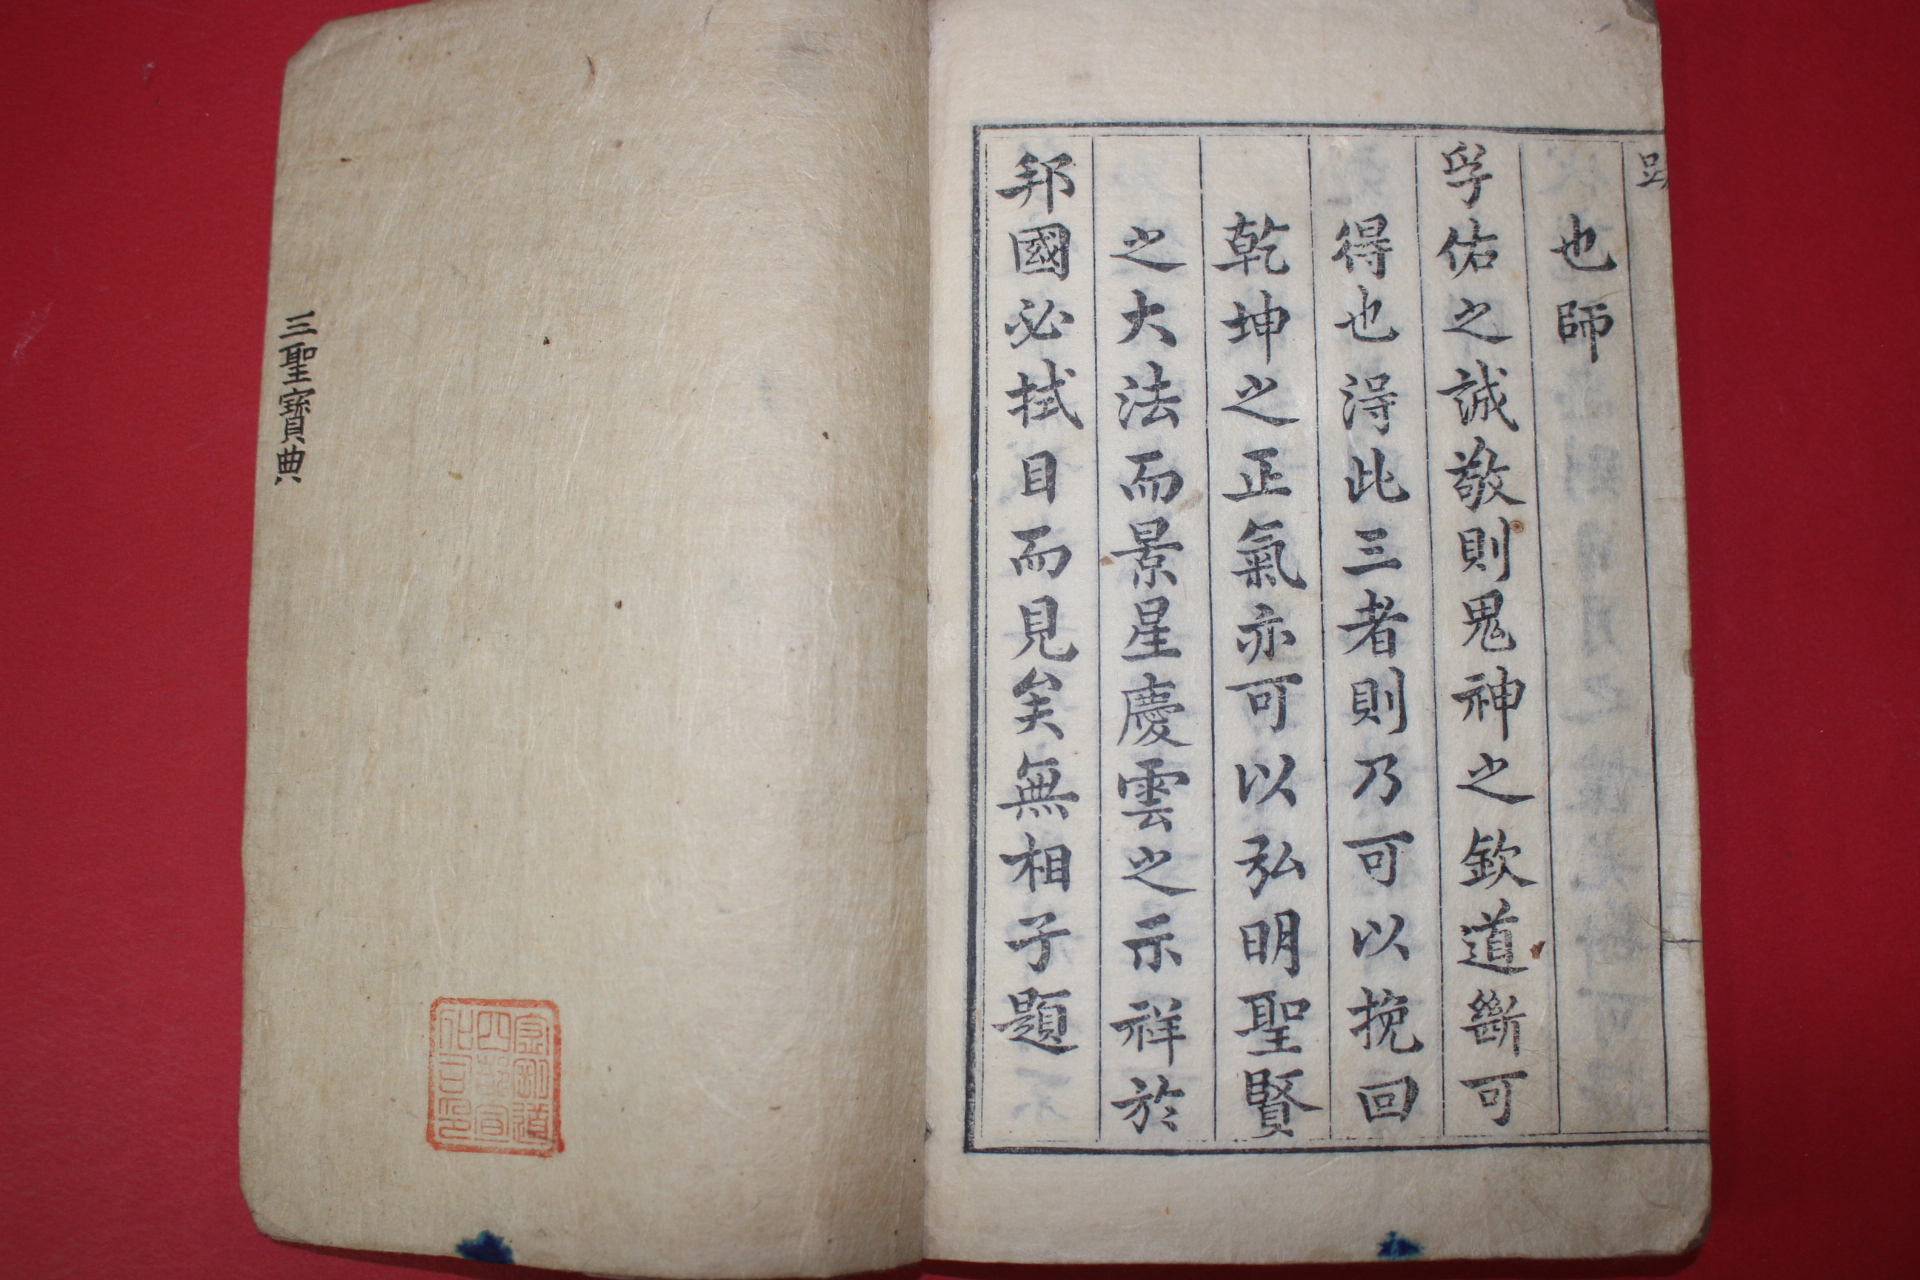 也師
孚佑之誠敬則鬼神之欽道斷可
得也淂此三者則乃可以挽回
乾坤之正氣亦可以弘明聖賢
之大法而景星慶雲之示祥於
邦國必拭目而見矣無相子題
三聖寶典
金剛道